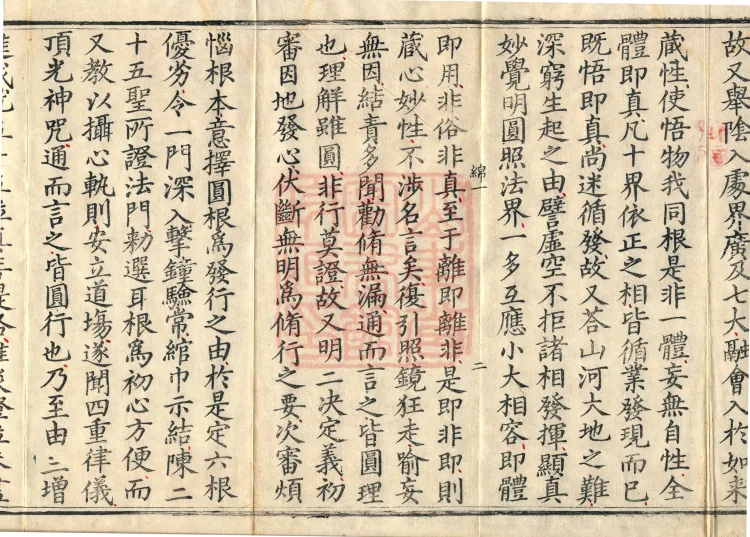 故又舉陰入處界廣及七大融會入於如来
蔵性使悟物我同根是非一體妄無自性全
體即真凡十界依正之相皆循業發現而已
既悟即真尚迷循發故又荅山河大地之難
深窮生起之由譬虛空不拒諸相發揮顯真
妙覺明圓照法界一多互應小大相容即體
綿一 二
即用非俗非真至于離即離非是即非即則
蔵心妙性不涉名言矣復引照鏡狂走喻妄
無因結責多聞勸脩無漏通而言之皆圓理
也理解雖圓非行莫證故又明二决定義初
審因地發心伏斷無明為脩行之要次審煩
惱根本意擇圓根為發行之由於是定六根
優劣令一門深入擊鐘驗常綰巾示結陳二
十五聖所證法門勑選耳根為初心方便而
又教以攝心軌則安立道塲遂聞四重律儀
頂光神咒通而言之皆圓行也乃至由三增